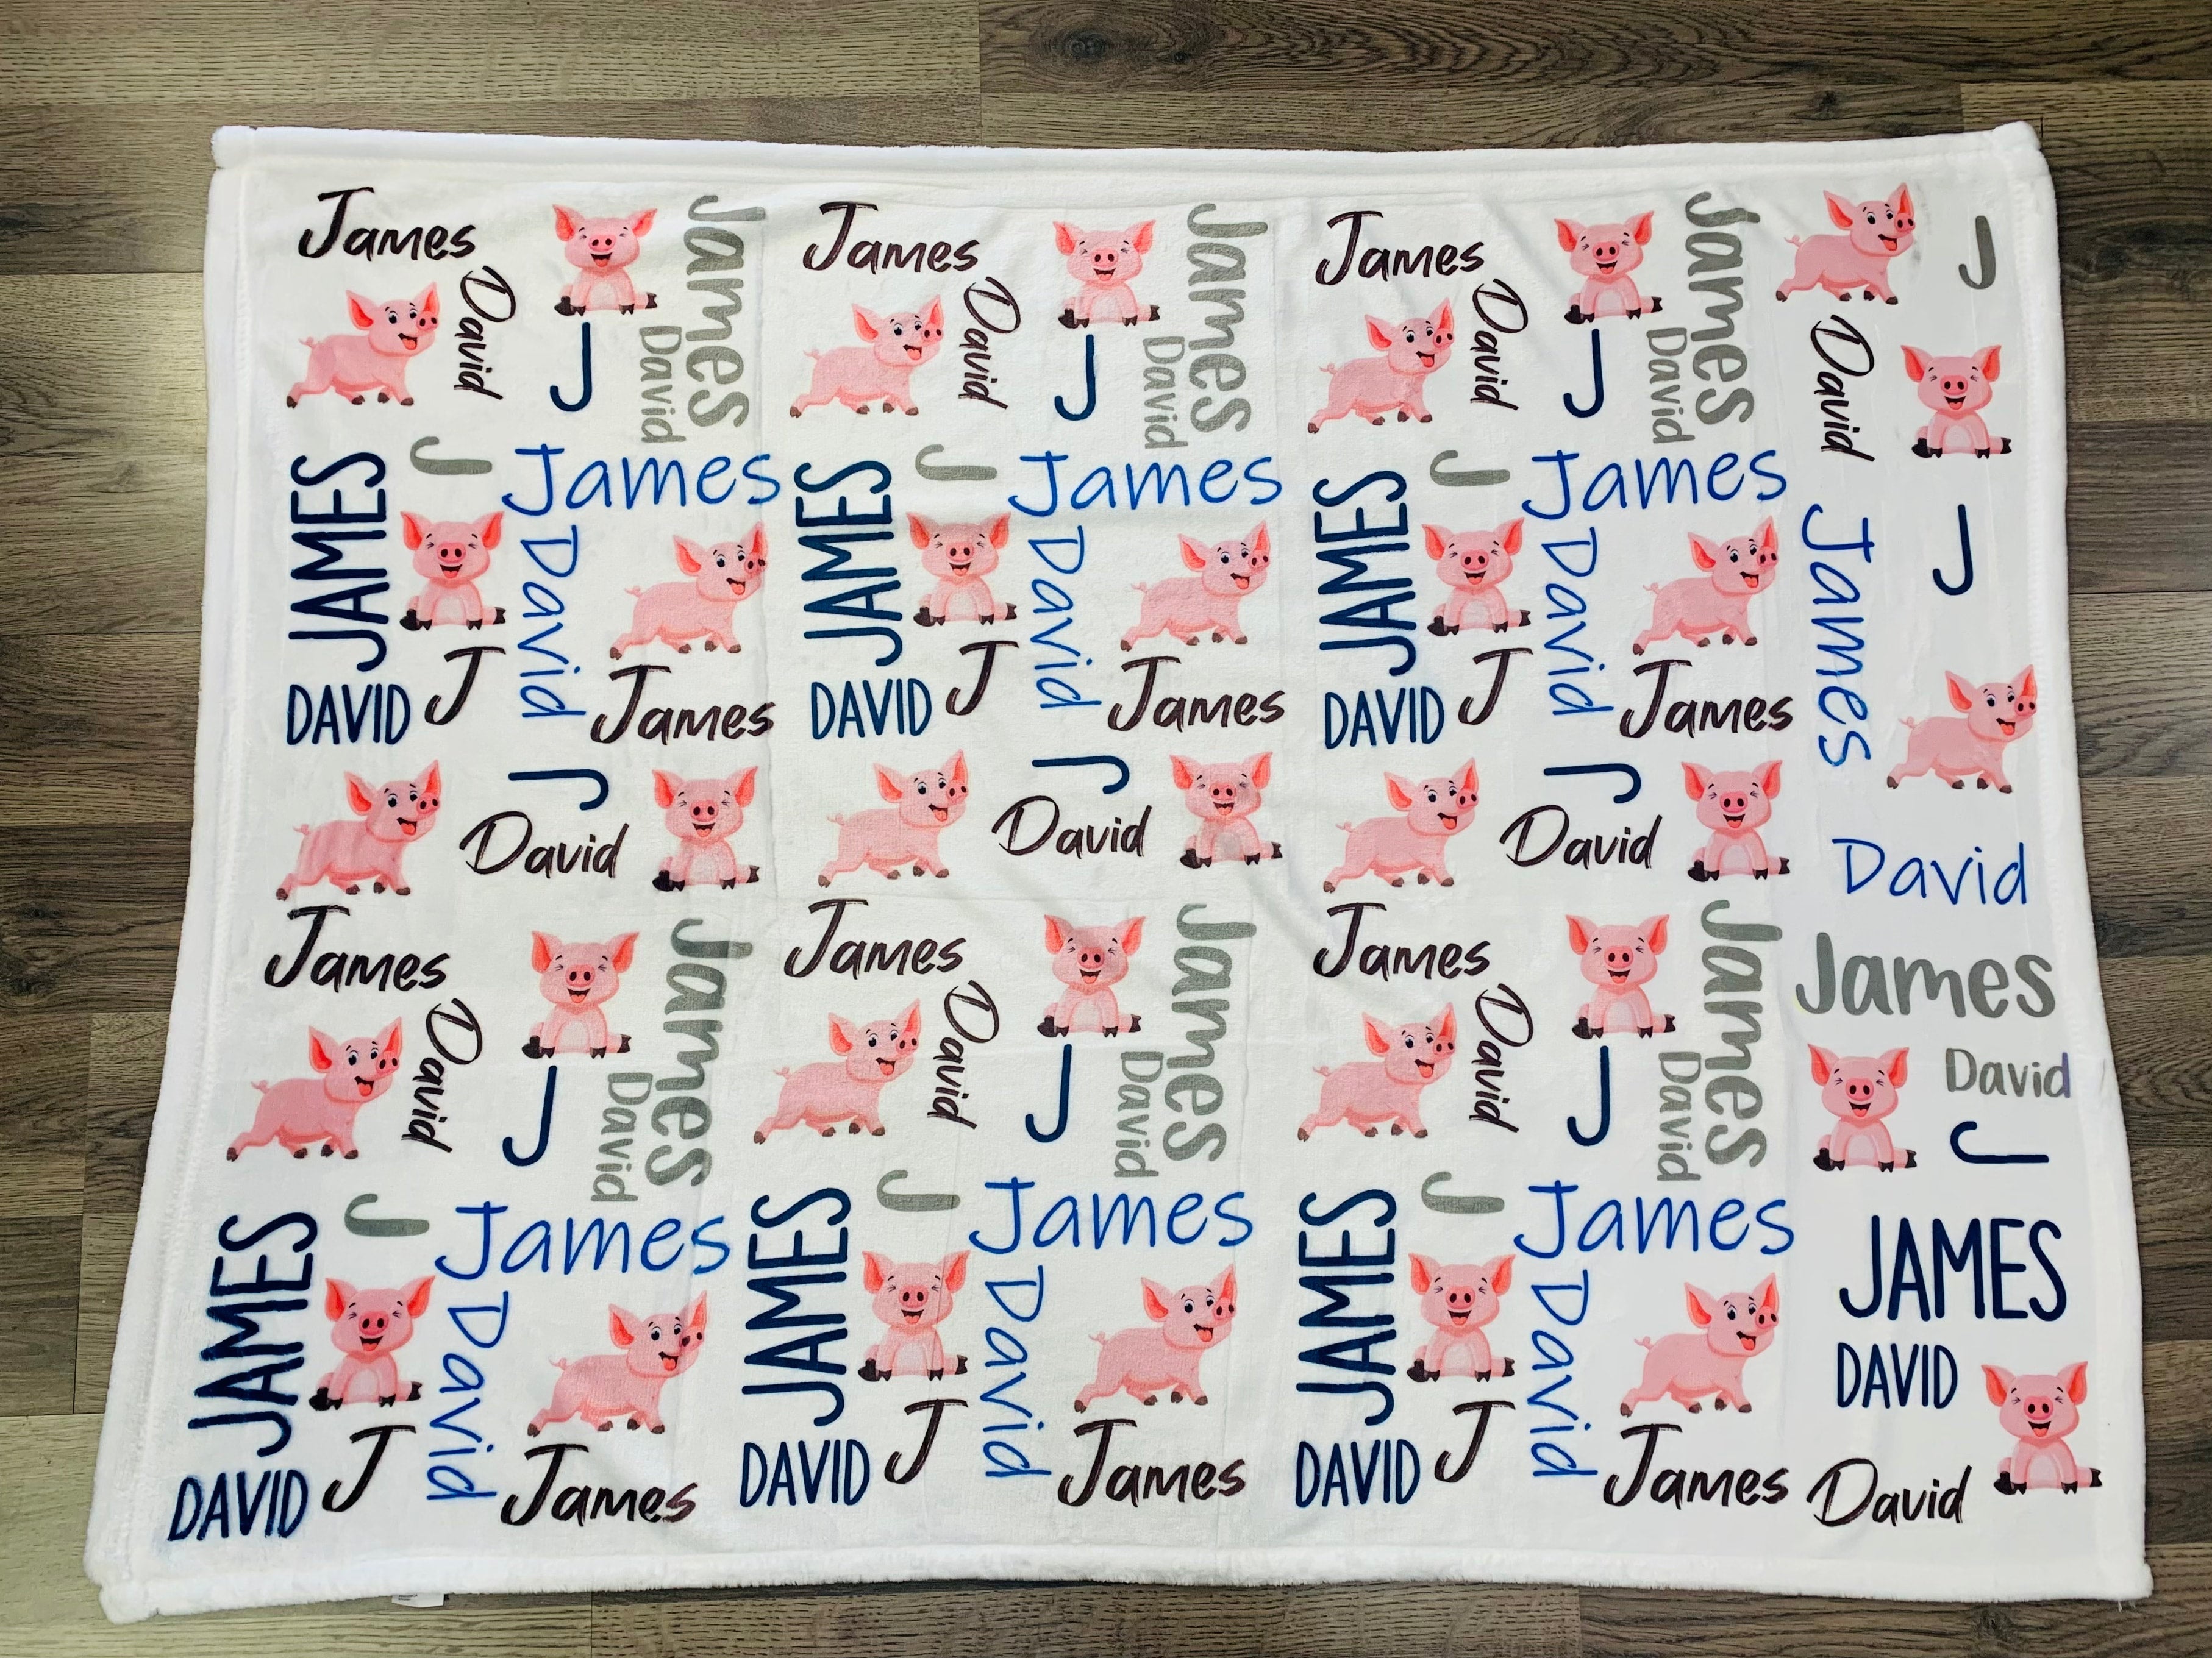 James
James
James
James
James
James
J
David
David
David
David
J
J
J
David
David
David
JAMES
J
James
JAMES
J
James
JAMES
J
James
James
J
David
David
David
DAVID
J
James
DAVID
J
James
DAVID
J
James
J
David
J
David
J
David
David
James
James
James
James
James
James
James
David
David
David
David
J
David
J
David
J
David
J
JAMES
J
James
JAMES
J
James
JAMES
J
James
JAMES
David
David
David
DAVID
DAVID
J
James
DAVID
J
James
DAVID
J
James
David